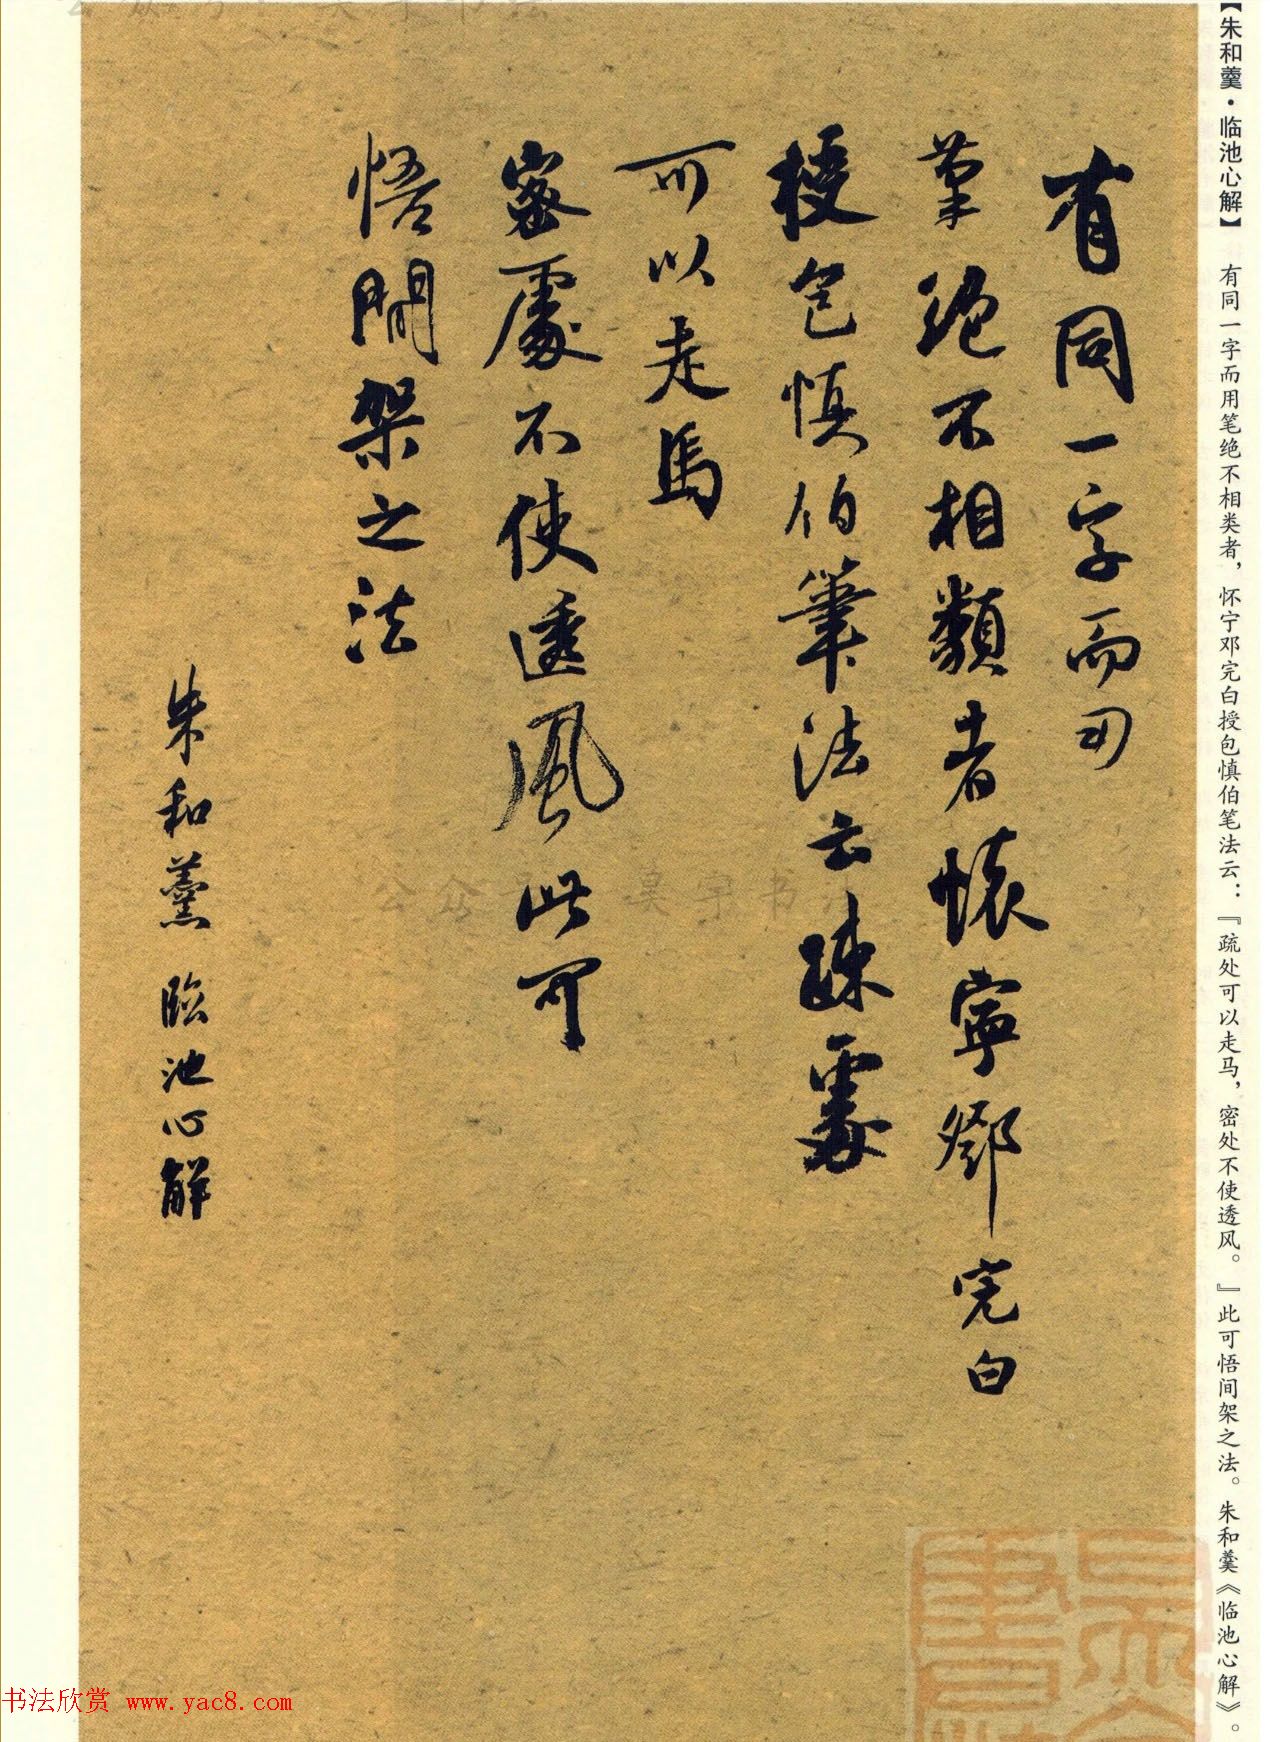 【朱和羹·临池心解】 有同一字而用笔绝不相类者，怀宁邓完白授包慎伯笔法云：『疏处可以走马，密处不使透风。』此可悟间架之法。朱和羹《临池心解》。
有同一字而用
筆絕不相類者懷寧鄧完白
授包慎伯筆法云疎處
可以走馬
密處不使透風此可
悟間架之法
朱和羹 臨池心解
公众 昊宇书法
书法欣赏 www.yac8.com